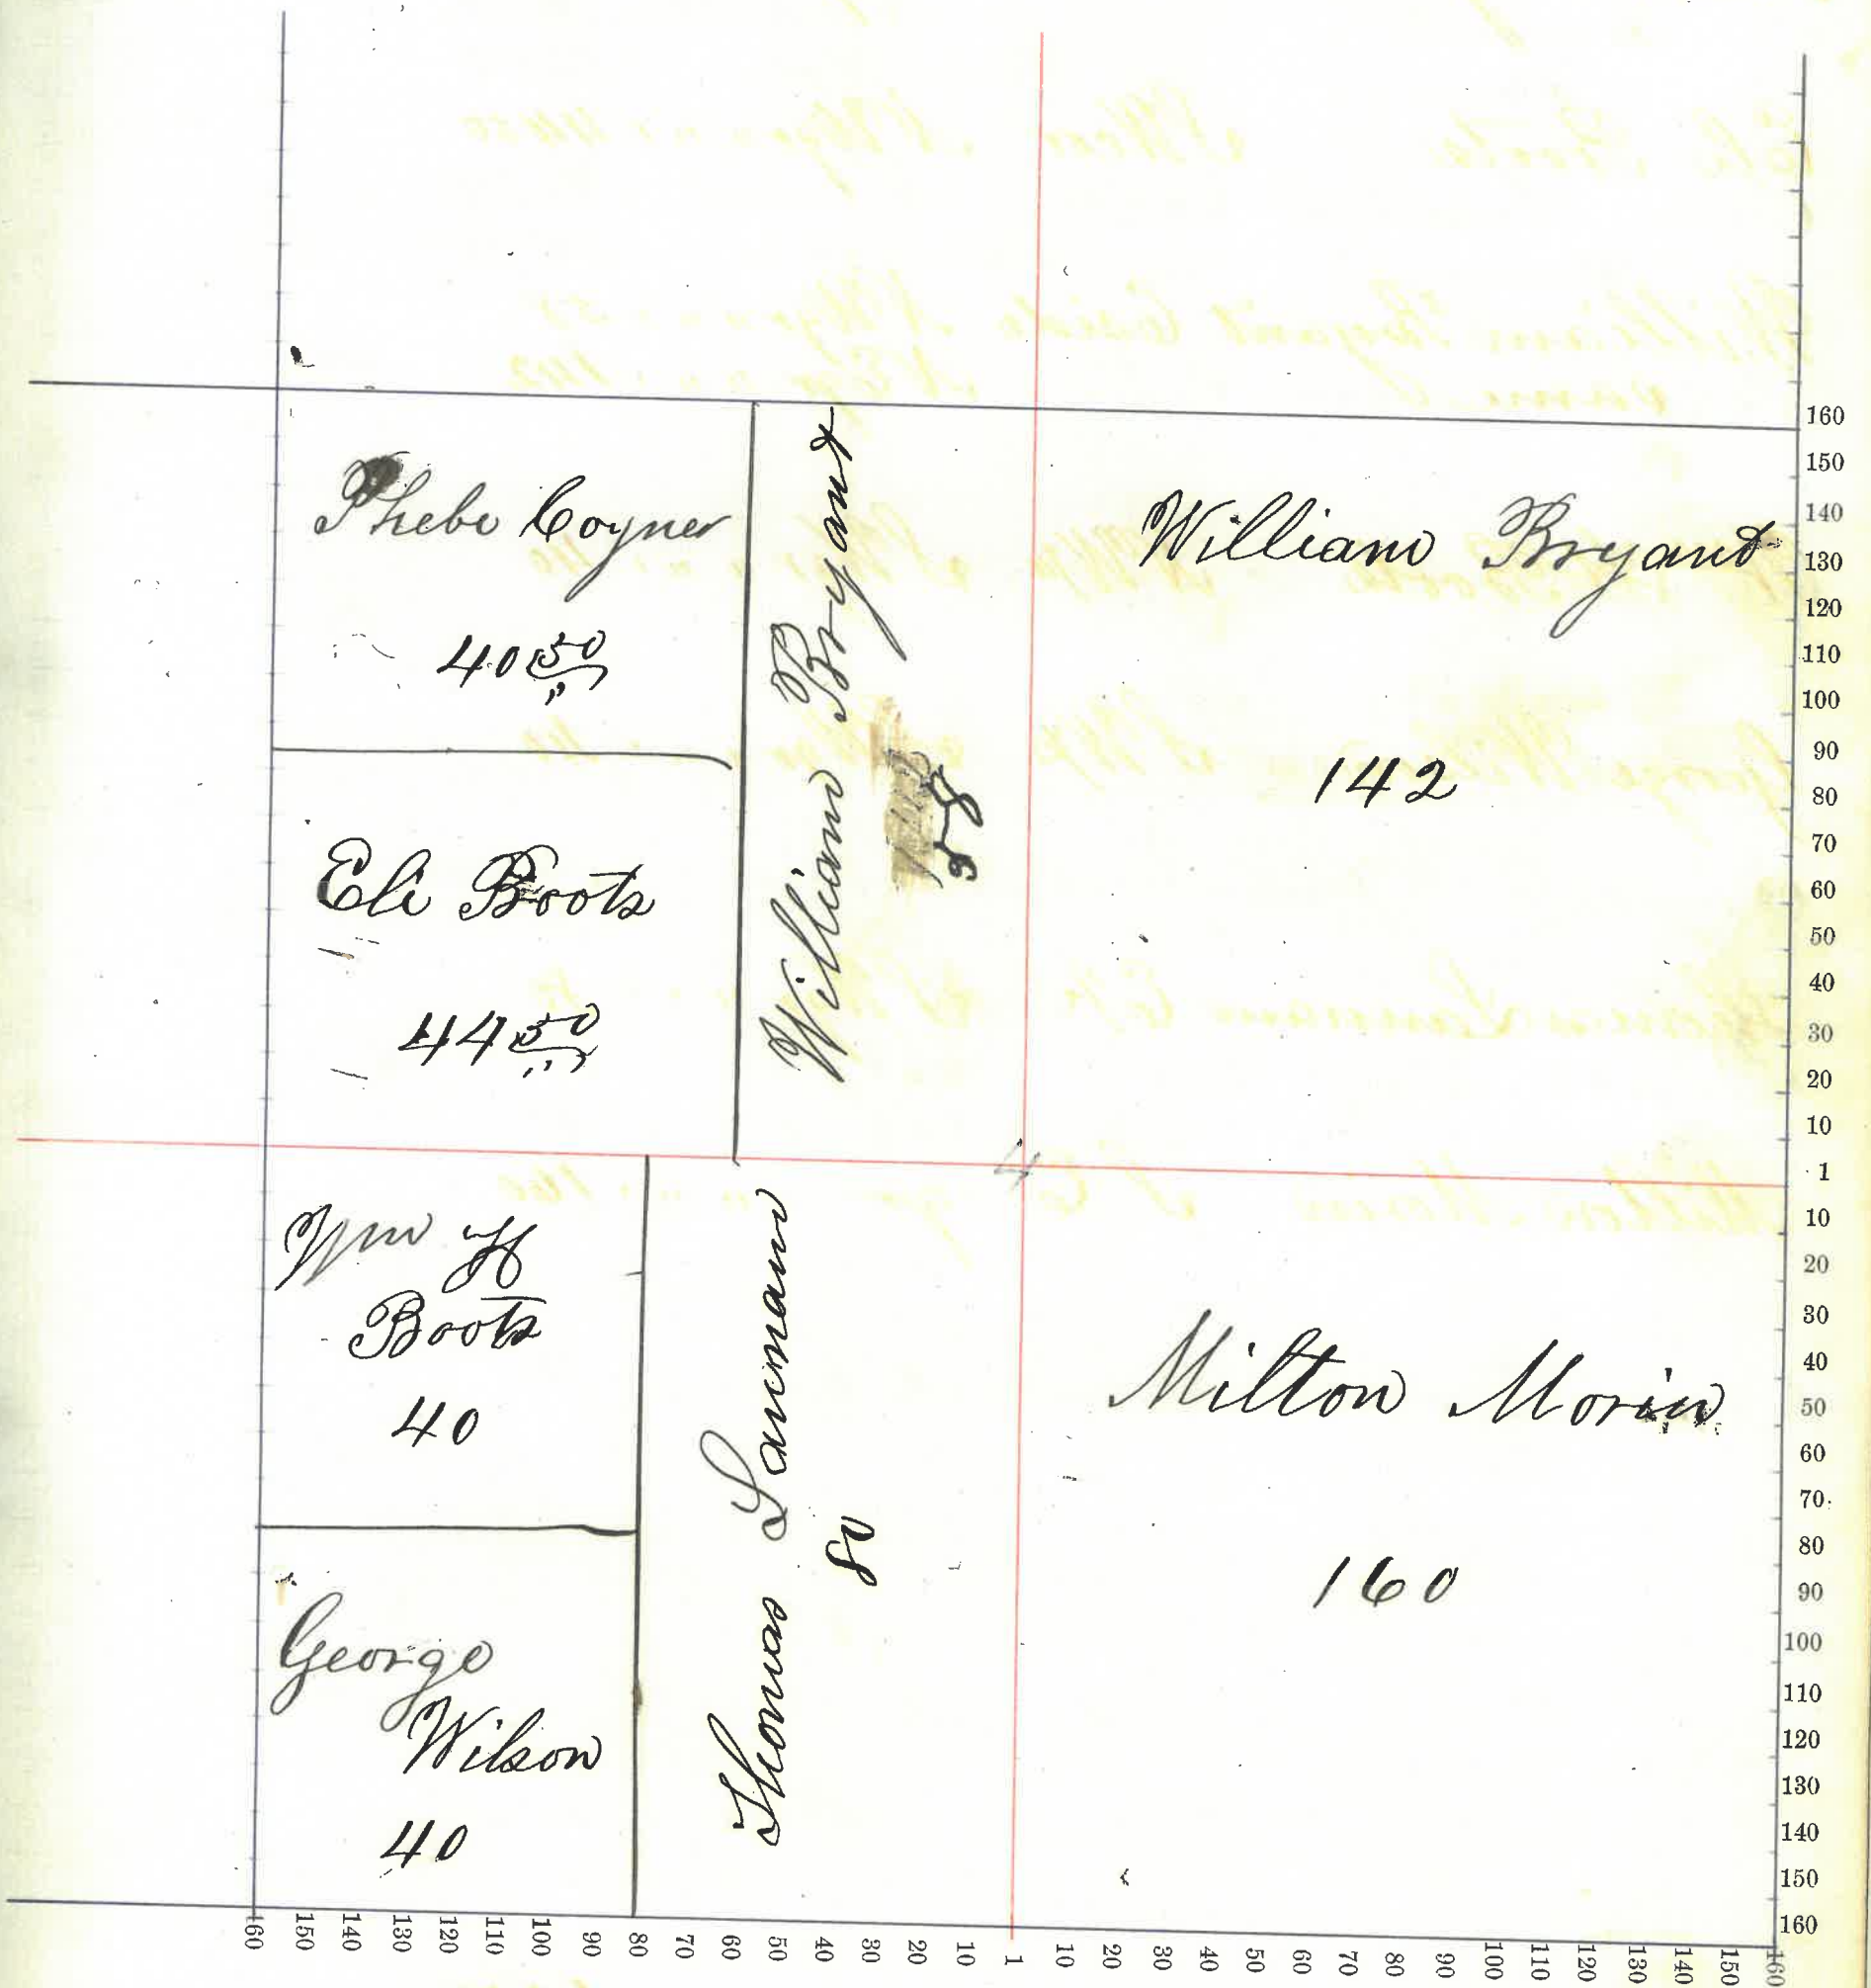 Phebe Coyner
40 50
William Bryant
55
William Bryant
142
Eli Boots
44 50
4
Wm H
Boots
40
Thomas Lanmann
80
Milton Morin
160
George
Wilson
40
160
150
140
130
120
110
100
90
80
70
60
50
40
30
20
10
1
10
20
30
40
50
60
70
80
90
100
110
120
130
140
150
160
160 150 140 130 120 110 100 90 80 70 60 50 40 30 20 10 1 10 20 30 40 50 60 70 80 90 100 110 120 130 140 150 160